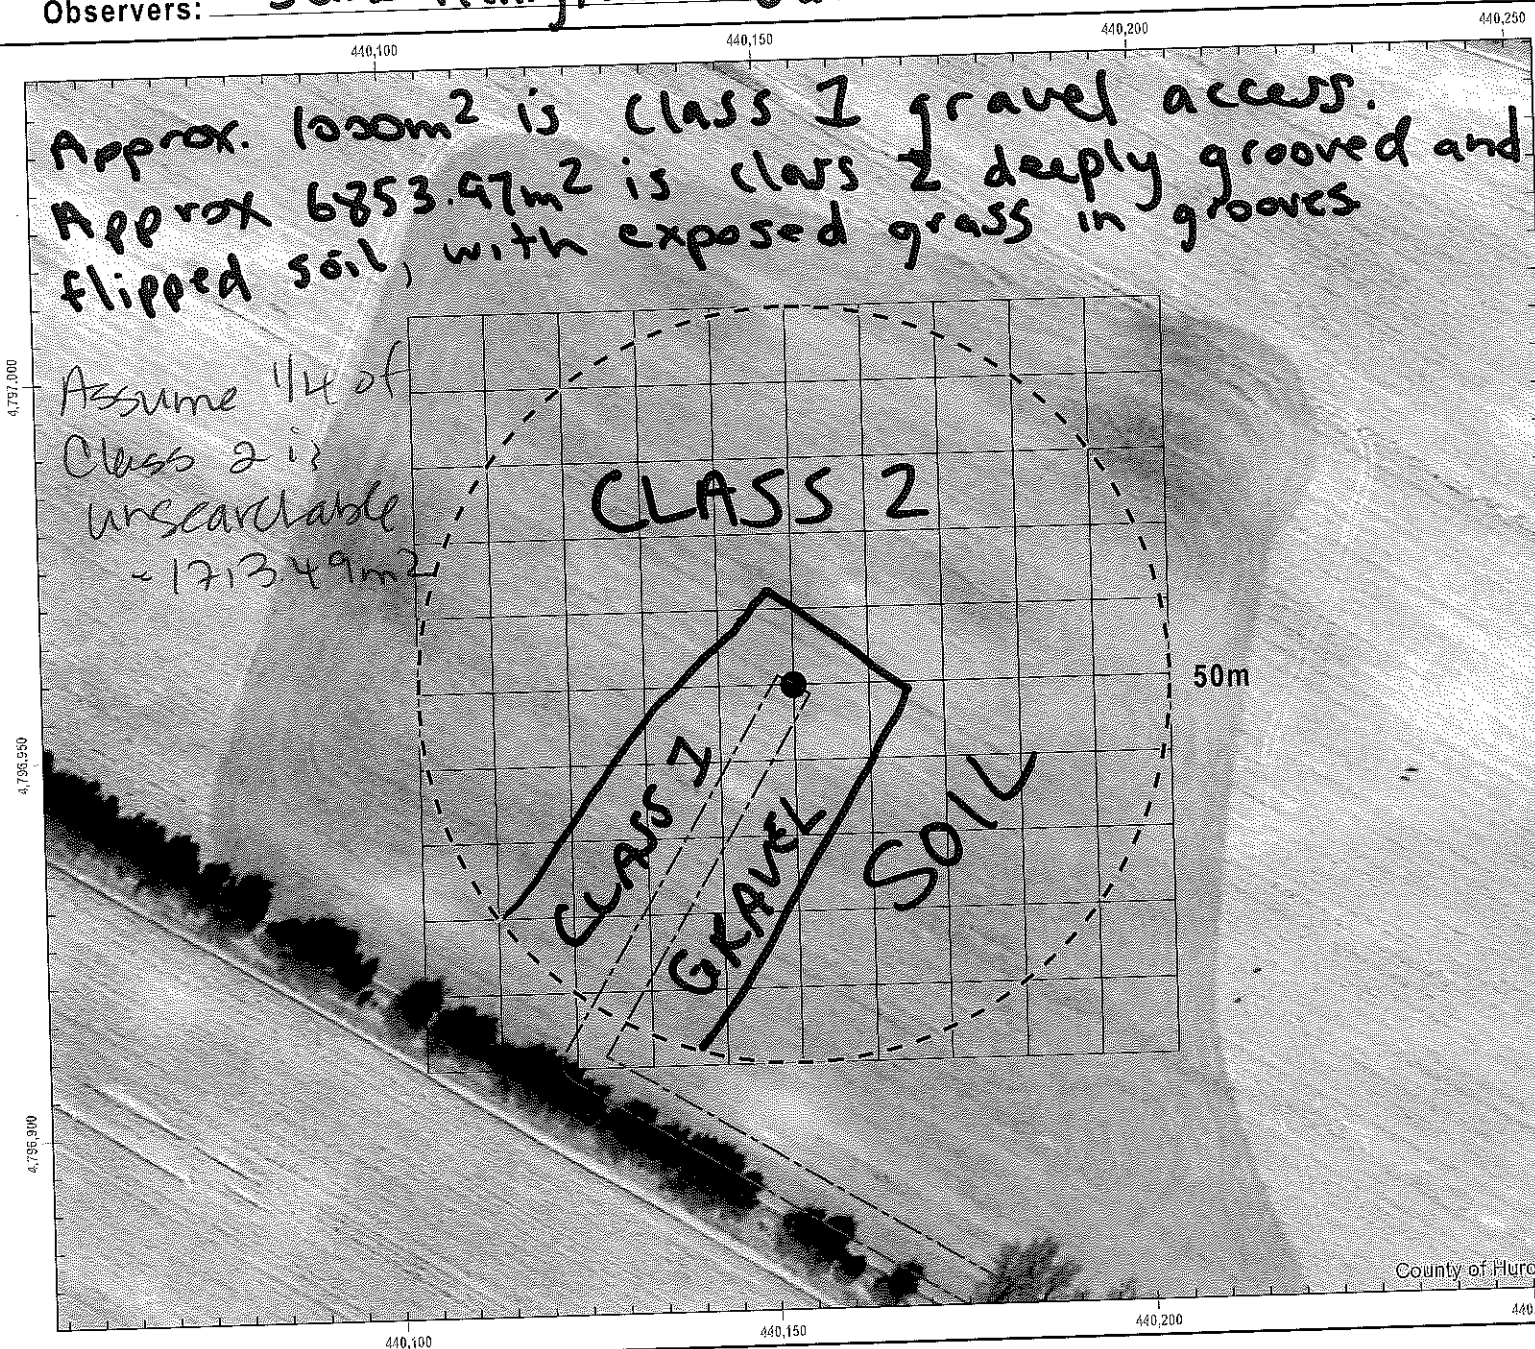 Observers:
440,100 440,150 440,200 440,250
Approx. 1000m² is Class 1 gravel access.
Approx 6853.97m² is class 2 deeply grooved and
flipped soil, with exposed grass in grooves
4,797,000
Assume 1/4 of
Class 2 is
unsearchable
CLASS 2
50m
4,796,950
CLASS 1
GRAVEL
SOIL
4,796,900
County of Huro
440,100 440,150 440,200 440,